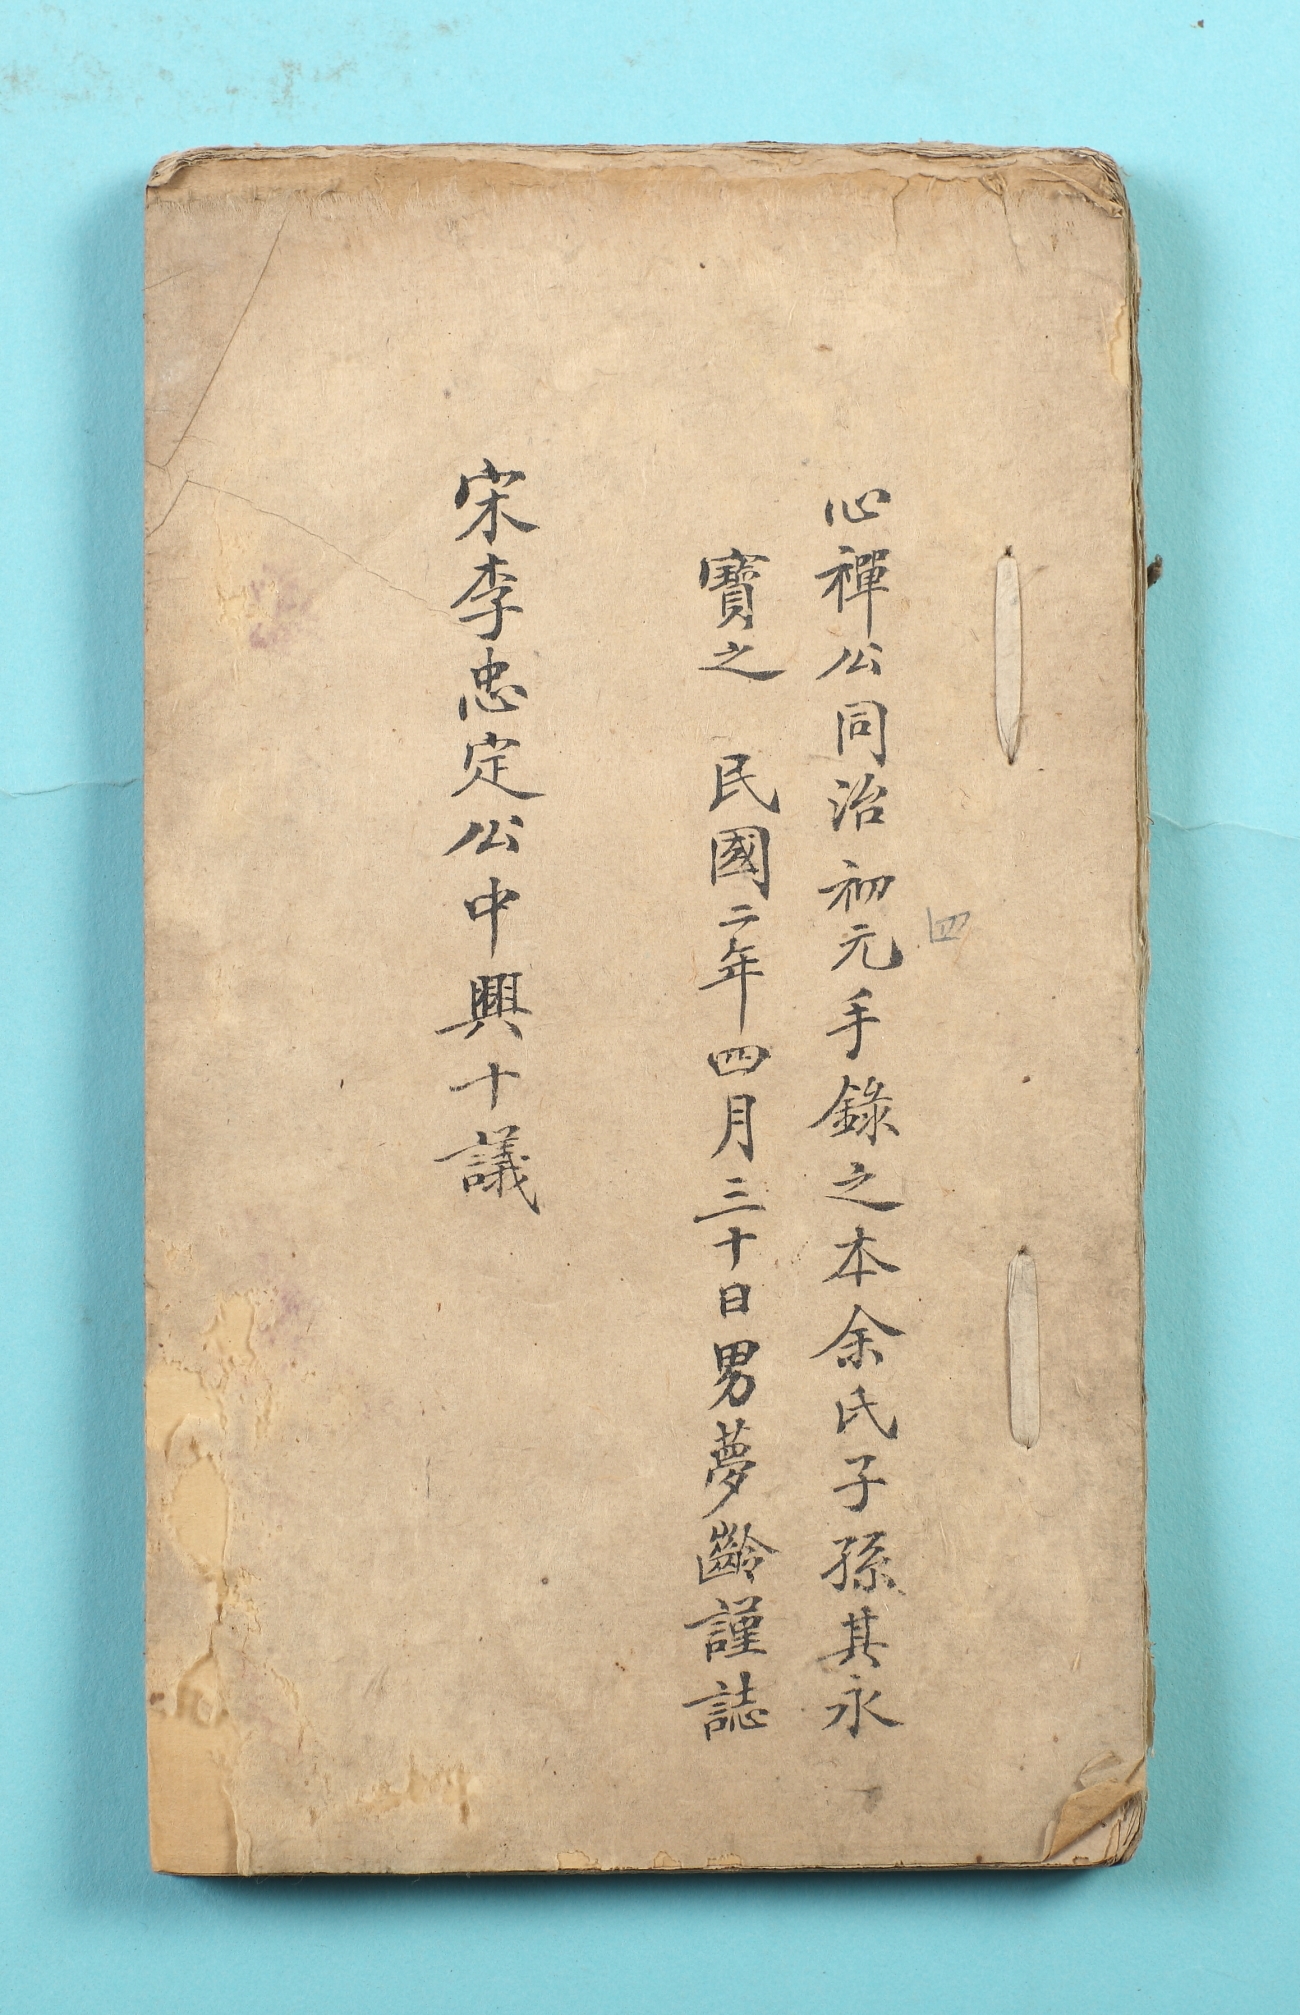 四
心禪公同治初元手錄之本余氏子孫其永
寶之 民國二年四月三十日男夢齡謹誌
宋李忠定公中興十議